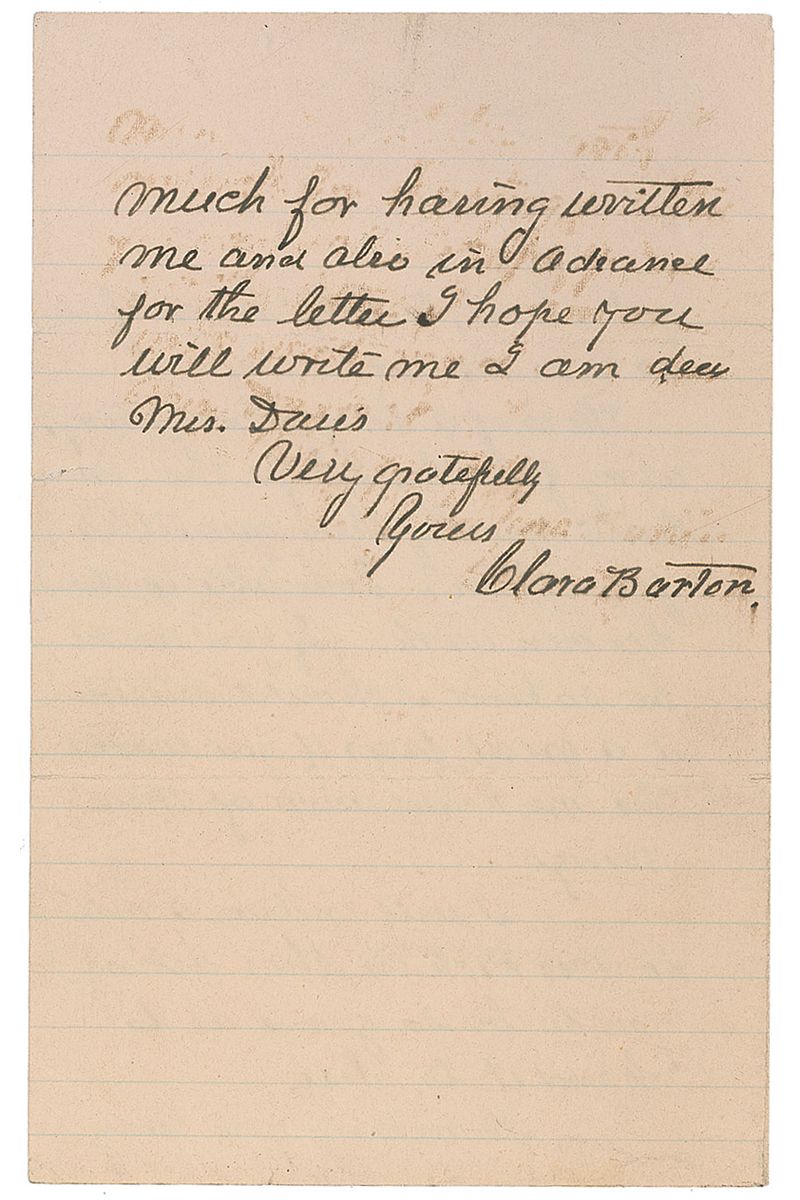 much for having written
me and also in advance
for the letter I hope you
will write me I am dear
Mrs. Davis
Very gratefully
Yours
Clara Barton.